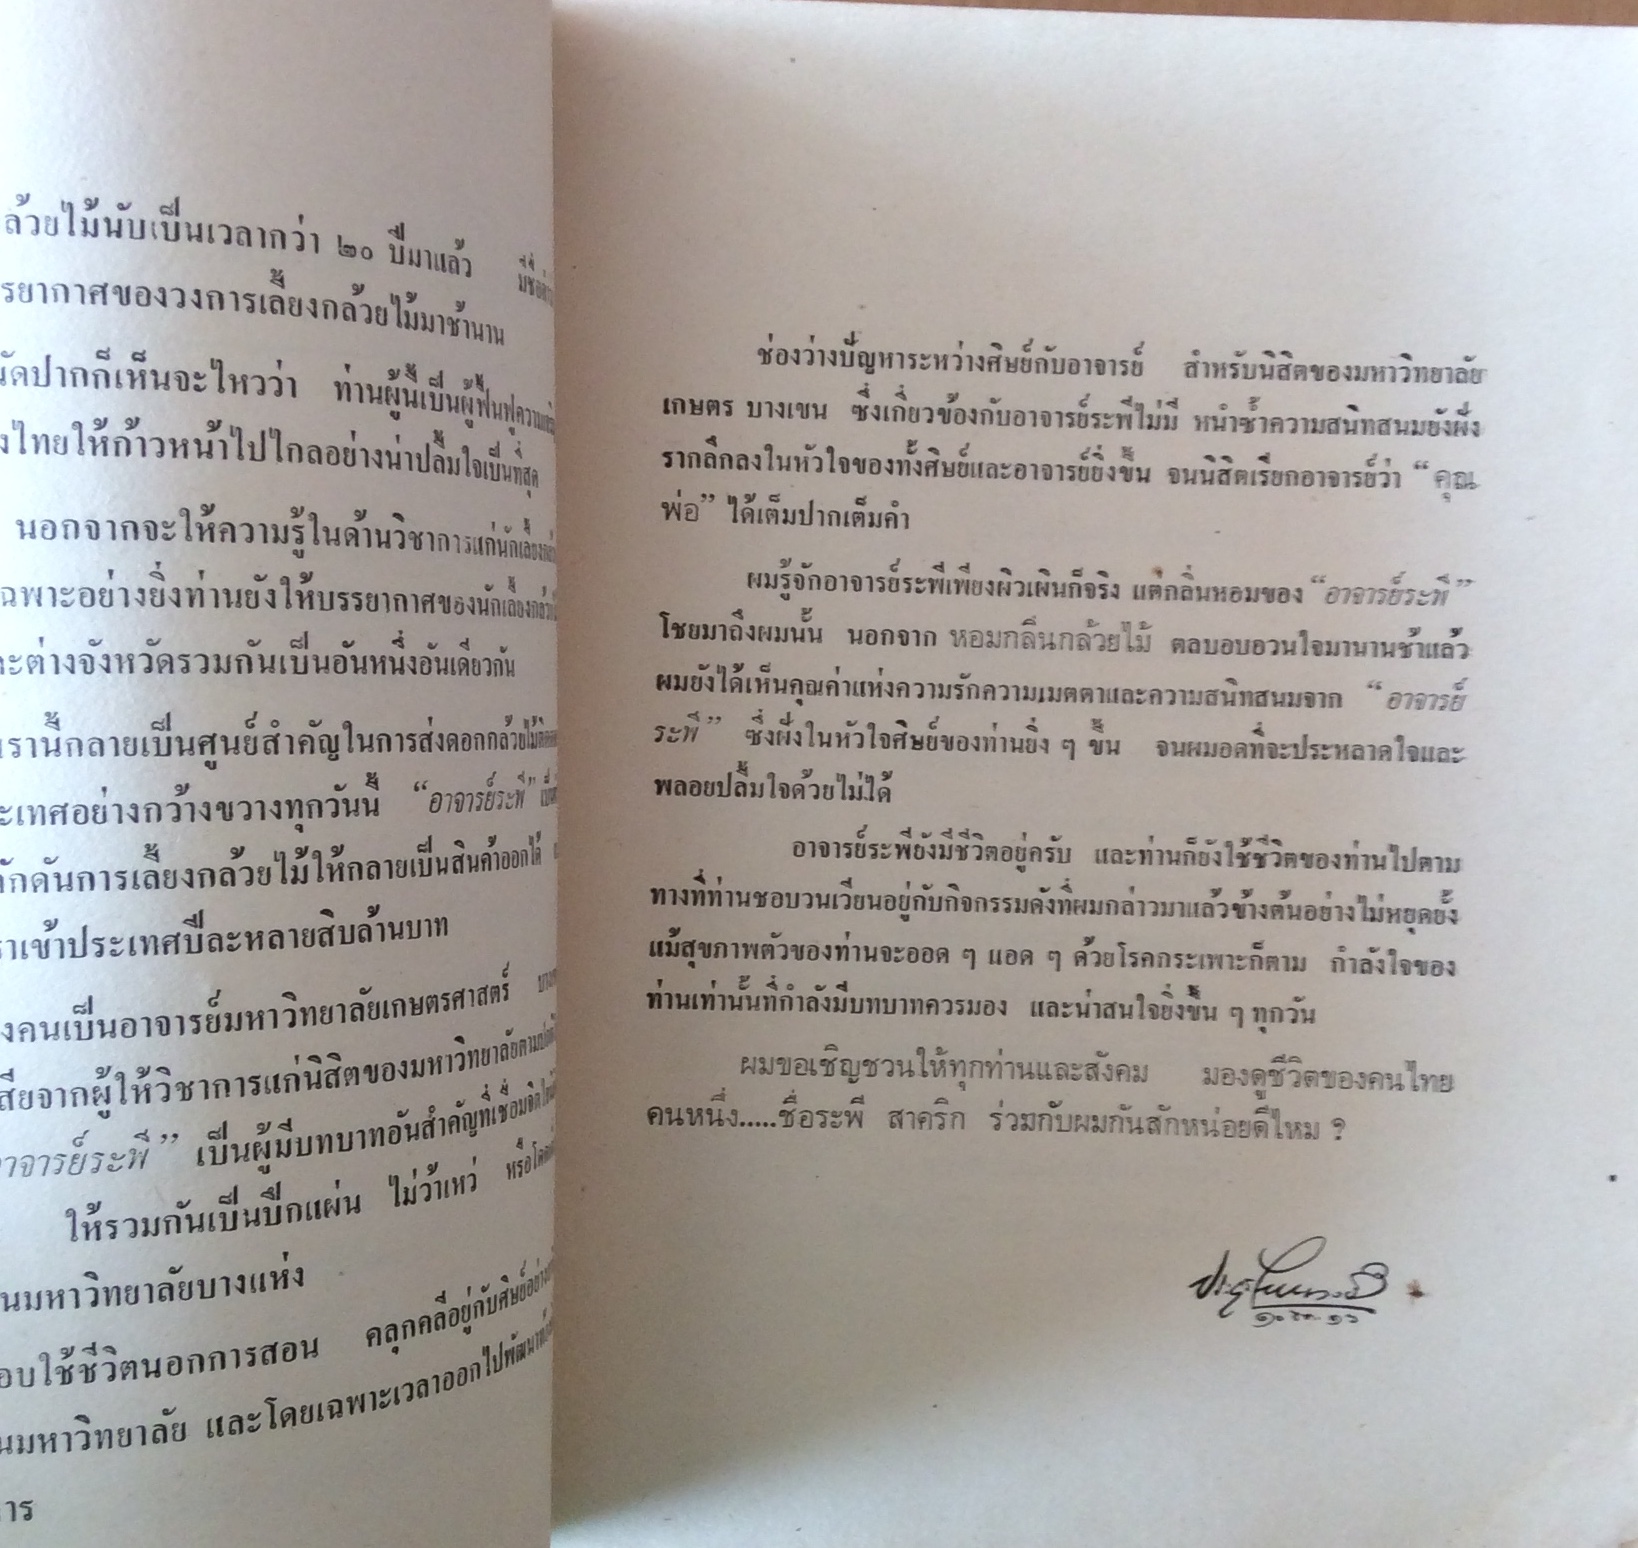 ล้วยไม้นับเป็นเวลากว่า ๒๐ ปีมาแล้ว
รยากาศของวงการเลี้ยงกล้วยไม้มาช้านาน
นัดปากก็เห็นจะไหวว่า ท่านผู้นี้เป็นผู้ฟื้นฟู
งไทยให้ก้าวหน้าไปไกลอย่างน่าปลื้มใจเป็นที่สุด
นอกจากจะให้ความรู้ในด้านวิชาการแก่นักเลี้ยง
ฉพาะอย่างยิ่งท่านยังให้บรรยากาศของนักเลี้ยง
ละต่างจังหวัดรวมกันเป็นอันหนึ่งอันเดียวกัน
เรานี้กลายเป็นศูนย์สำคัญในการส่งดอกกล้วยไม้
ะเทศอย่างกว้างขวางทุกวันนี้ “อาจารย์ระพี”
ลักดันการเลี้ยงกล้วยไม้ให้กลายเป็นสินค้าออกได้
ราเข้าประเทศปีละหลายสิบล้านบาท
งคนเป็นอาจารย์มหาวิทยาลัยเกษตรศาสตร์
สียจากผู้ให้วิชาการแก่นิสิตของมหาวิทยาลัย
อาจารย์ระพี” เป็นผู้มีบทบาทอันสำคัญที่เชื่อม
ให้รวมกันเป็นปึกแผ่น ไม่ว้าเหว่
นมหาวิทยาลัยบางแห่ง
อบใช้ชีวิตนอกการสอน คลุกคลีอยู่กับศิษย์
นมหาวิทยาลัย และโดยเฉพาะเวลาออกไปพัฒนา
การ
ช่องว่างปัญหาระหว่างศิษย์กับอาจารย์ สำหรับนิสิตของมหาวิทยาลัย
เกษตร บางเขน ซึ่งเกี่ยวข้องกับอาจารย์ระพีไม่มี หนำซ้ำความสนิทสนมยังฝัง
รากลึกลงในหัวใจของทั้งศิษย์และอาจารย์ยิ่งขึ้น จนนิสิตเรียกอาจารย์ว่า “คุณ
พ่อ” ได้เต็มปากเต็มคำ
ผมรู้จักอาจารย์ระพีเพียงผิวเผินก็จริง แต่กลิ่นหอมของ “อาจารย์ระพี”
โชยมาถึงผมนั้น นอกจาก หอมกลิ่นกล้วยไม้ ตลบอบอวนใจมานานช้าแล้ว
ผมยังได้เห็นคุณค่าแห่งความรักความเมตตาและความสนิทสนมจาก “อาจารย์
ระพี” ซึ่งฝังในหัวใจศิษย์ของท่านยิ่ง ๆ ขึ้น จนผมอดที่จะประหลาดใจและ
พลอยปลื้มใจด้วยไม่ได้
อาจารย์ระพียังมีชีวิตอยู่ครับ และท่านก็ยังใช้ชีวิตของท่านไปตาม
ทางที่ท่านชอบวนเวียนอยู่กับกิจกรรมดังที่ผมกล่าวมาแล้วข้างต้นอย่างไม่หยุดยั้ง
แม้สุขภาพตัวของท่านจะออด ๆ แอด ๆ ด้วยโรคกระเพาะก็ตาม กำลังใจของ
ท่านเท่านั้นที่กำลังมีบทบาทควรมอง และน่าสนใจยิ่งขึ้น ๆ ทุกวัน
ผมขอเชิญชวนให้ทุกท่านและสังคม มองดูชีวิตของคนไทย
คนหนึ่ง.....ชื่อระพี สาคริก ร่วมกับผมกันสักหน่อยดีไหม ?